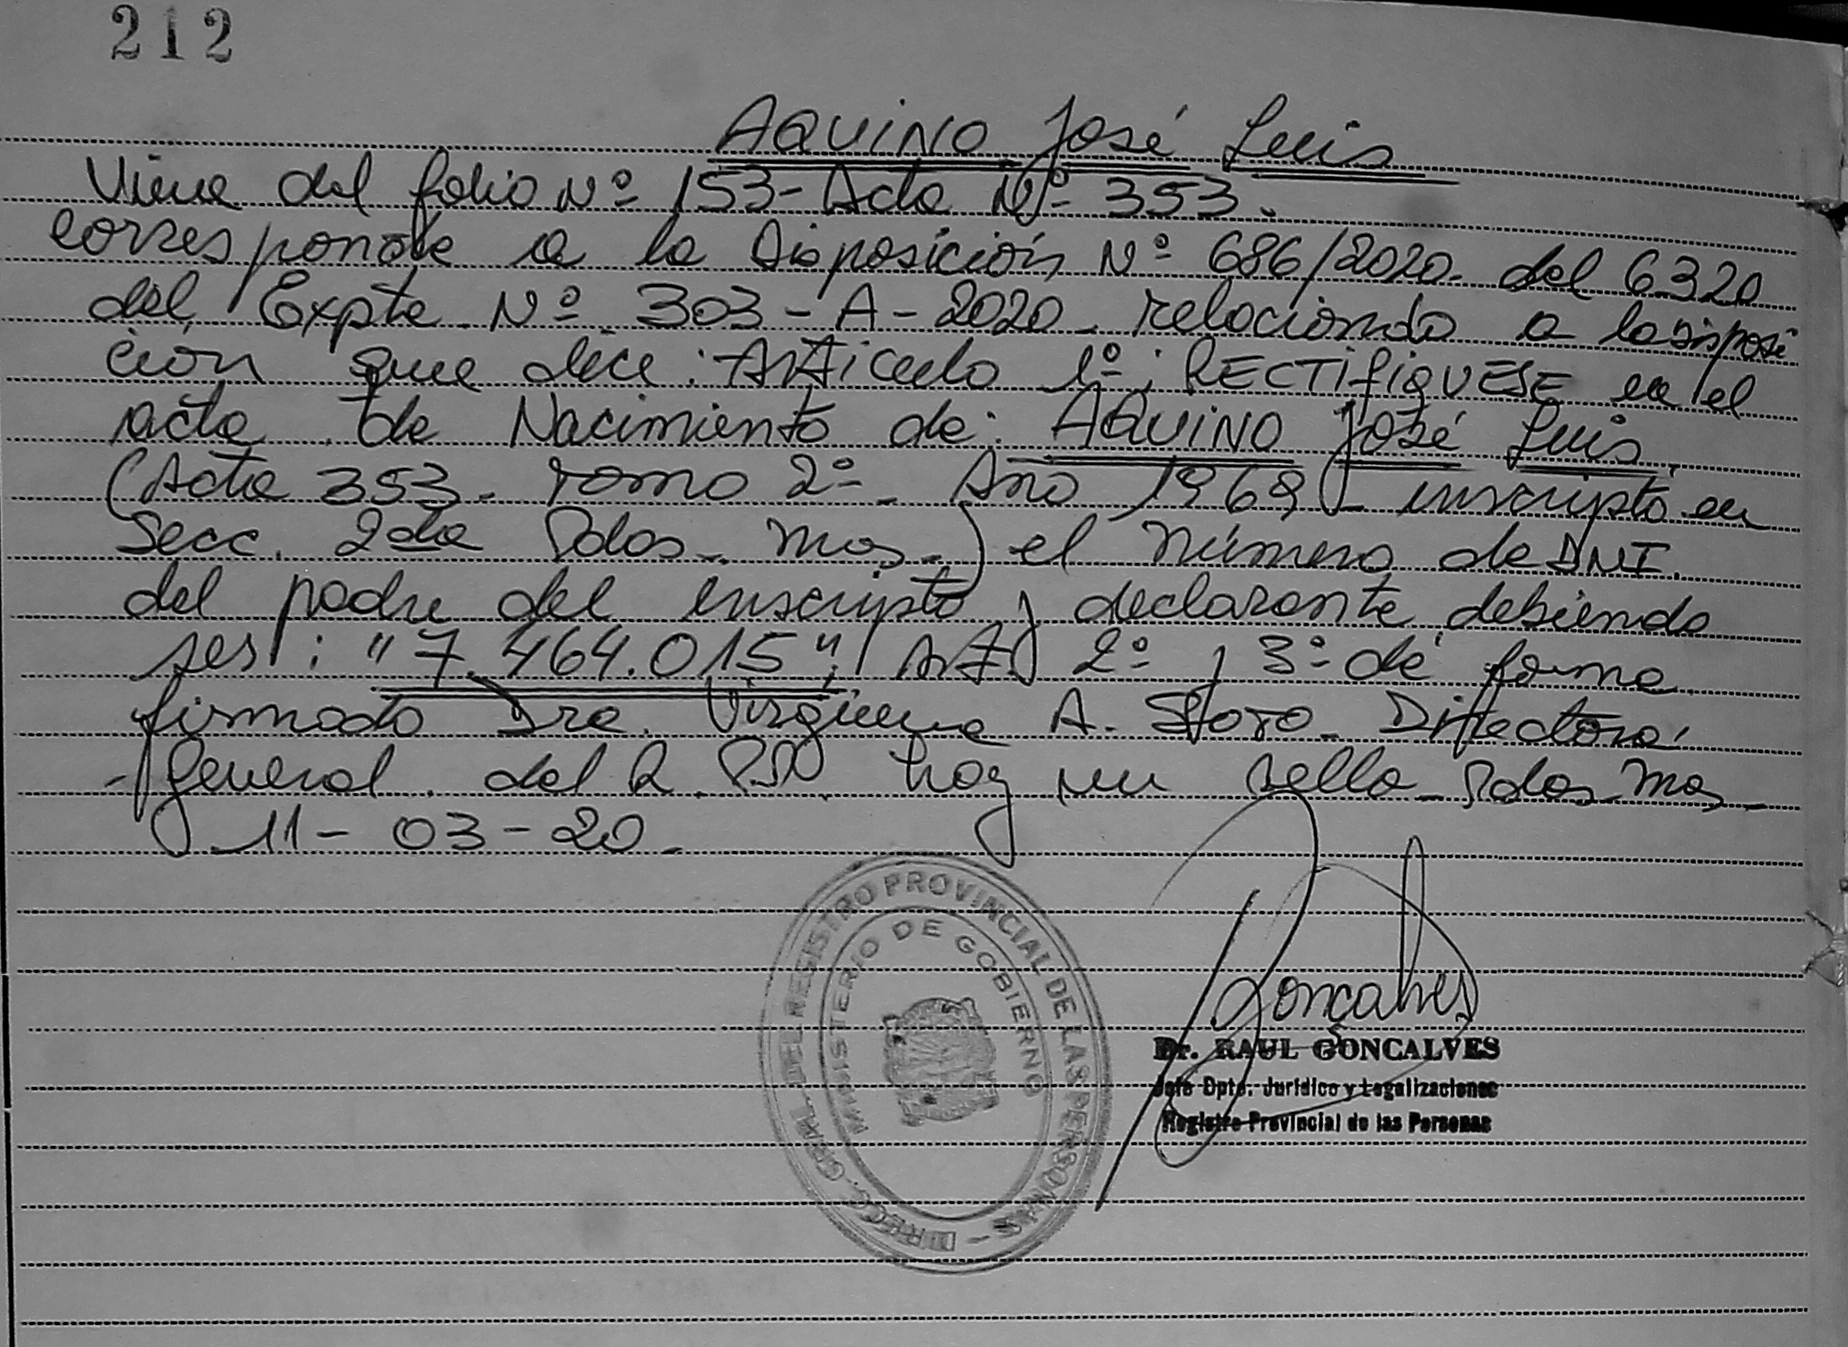 212
AQUINO José Luis
Viene del folio Nº 153- Acta Nº 353.
corresponde a la Disposición Nº 686/2020. del 6320
del Expte Nº 303-A-2020. relacionado a la disposi
ción que dice: Artículo 1º: RECTIFIQUESE en el
acta de Nacimiento de: AQUINO José Luis.
(Acta 353. Tomo 2º. Año 1969 - inscripto en
Secc. 2da Pdas. Mns.) el número de DNI.
del padre del inscripto y declarante, debiendo
ser: "7.464.015", Art. 2º y 3º de forma
firmado Dra. Virginia A. Directora
General del R.P.P. hay un sello. Pdas. Mns.
11-03-20.
DIRECC. GRAL. DEL REGISTRO PROVINCIAL DE LAS PERSONAS -
MINISTERIO DE GOBIERNO
Gonçalves
Dr. RAUL GONÇALVES
Jefe Dpto. Jurídico y Legalizaciones
Registro Provincial de las Personas